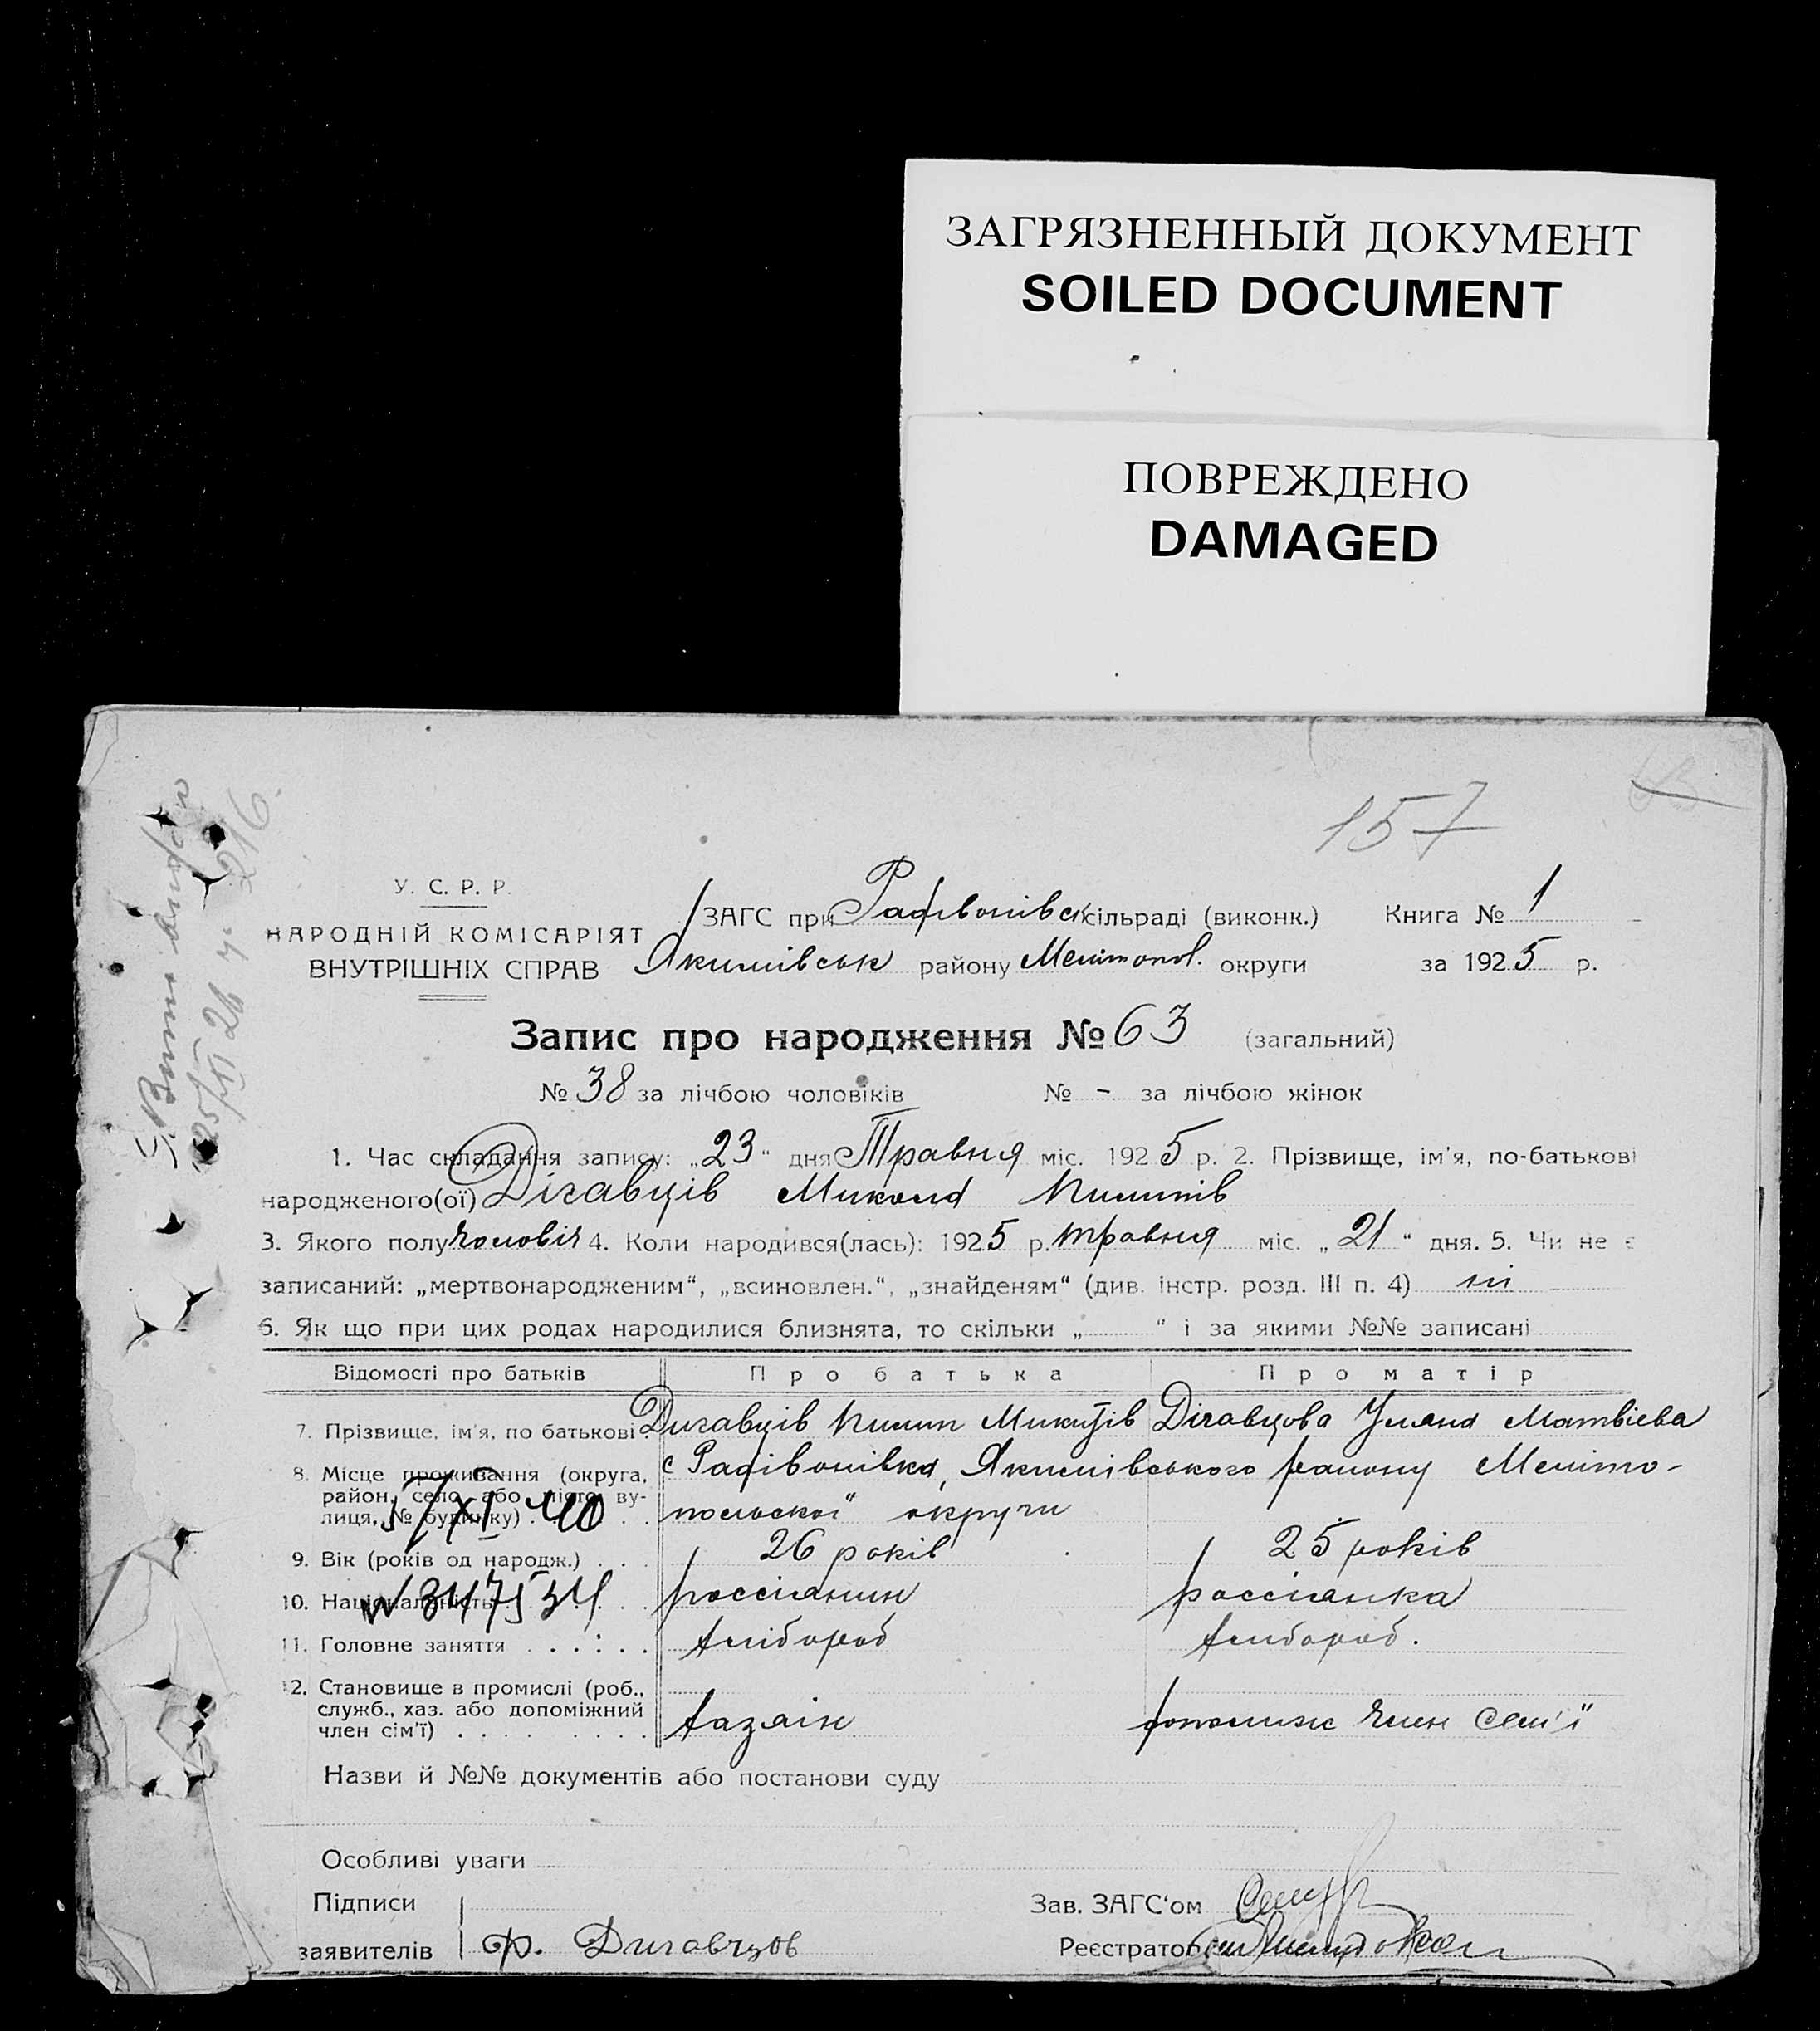 ЗАГРЯЗНЕННЫЙ ДОКУМЕНТ
SOILED DOCUMENT
ПОВРЕЖДЕНО
DAMAGED
157
У. С. Р. Р.
НАРОДНІЙ КОМІСАРІЯТ
ВНУТРІШНІХ СПРАВ
ЗАГС при Радівонівськ сільраді (виконк.) Книга № 1
Якимівськ району Мелітопол. округи за 1925 р.
Запис про народження № 63 (загальний)
№ 38 за лічбою чоловіків № - за лічбою жінок
1. Час складання запису: „23“ дня Травня міс. 1925 р. 2. Прізвище, ім'я, по-батькові
народженого(ої) Дігавців Микола Пилипів
3. Якого полу чоловіч 4. Коли народився(лась): 1925 р. травня міс. „21“ дня. 5. Чи не є
записаний: „мертвонародженим“, „всиновлен.“, „знайденям“ (див. інстр. розд. III п. 4) ні
6. Як що при цих родах народилися близнята, то скільки „ “ і за якими №№ записані
Відомості про батьків Про батька Про матір
7. Прізвище, ім'я, по батькові Дигавців Пилип Микитів Дігавцова Уляна Матвієва
8. Місце проживання (округа, с Радівонівка, Якимівського району Меліто-
район, село або місто, ву-
лиця, № будинку) польської округи
17 XI 40
9. Вік (років од народж.) 26 років 25 років
10. Національність россіянин россіянка
11. Головне заняття хлібороб хлібороб.
12. Становище в промислі (роб.,
служб., хаз. або допоміжний
член сім'ї) хазяїн допоміжн член сем'ї
Назви й №№ документів або постанови суду
Особливі уваги
Підписи
заявителів Ф. Дигавцов
Зав. ЗАГС'ом
Реєстратор